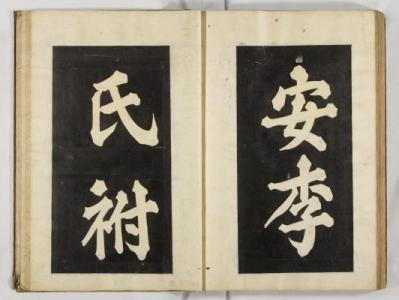 安李
氏祔